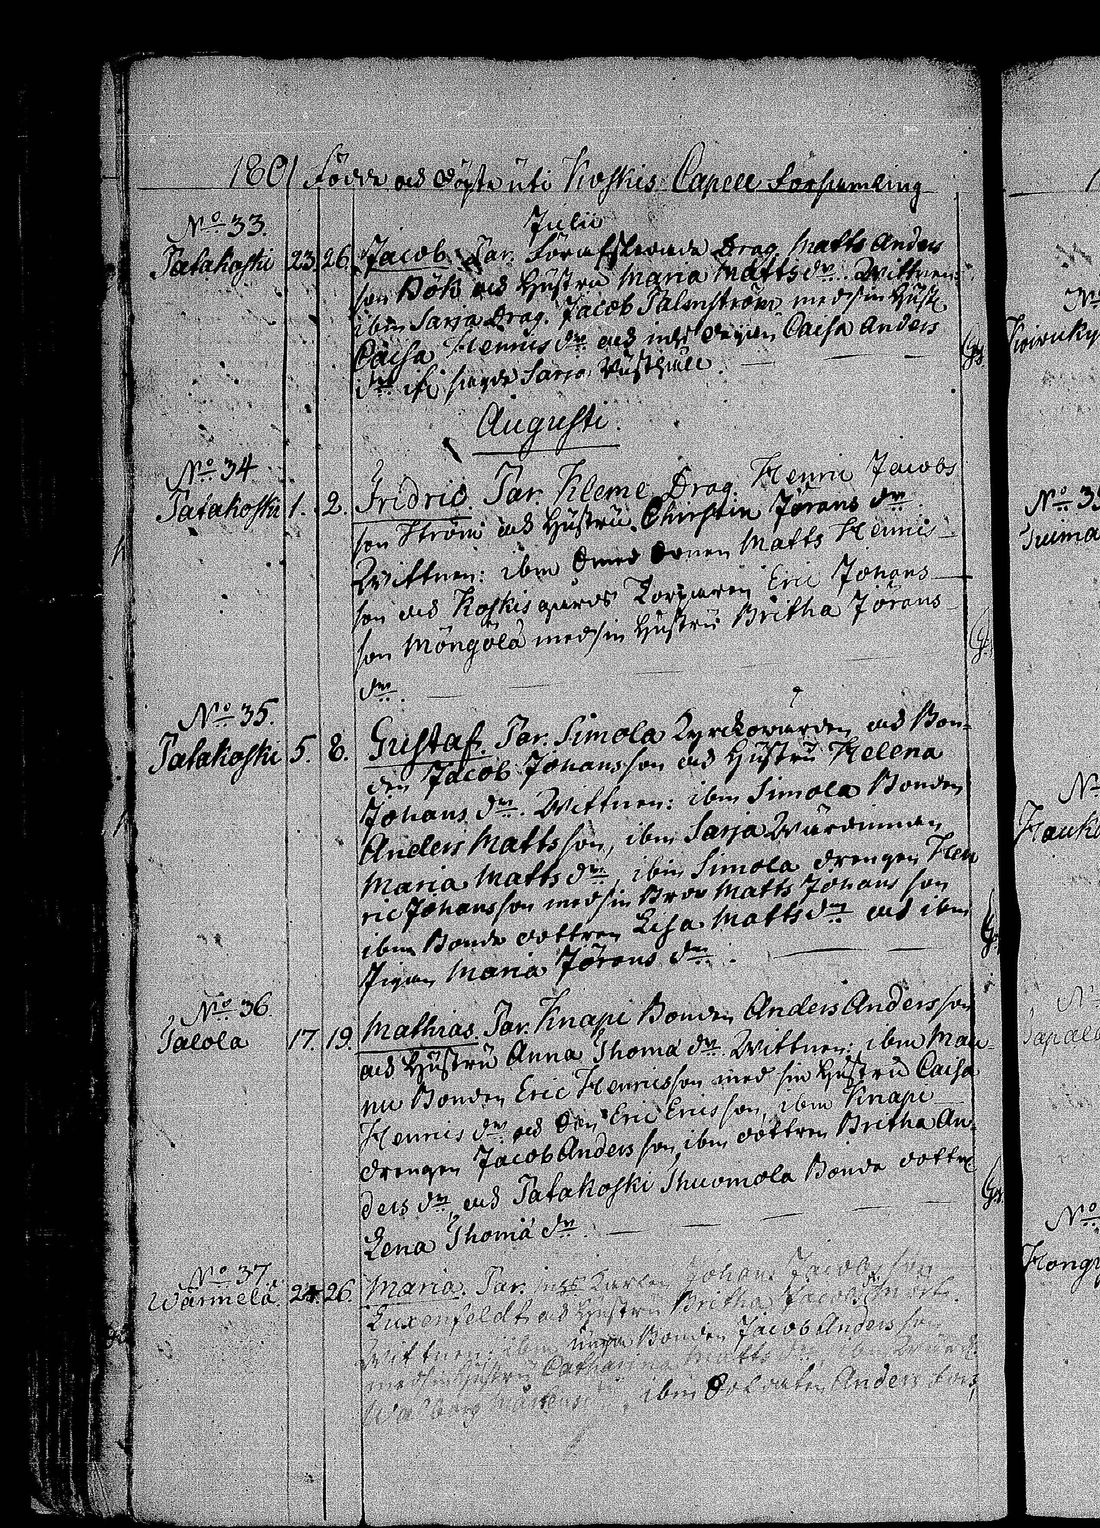 1801 Födde och Döpte uti Koskis Capell Församling
Julii
No 33.
Patakoski 23. 26. Jacob. Par. Drag. Matts Anders
son Böök och Hustru Maria Matts dr. Wittnen:
ibm Sarja Drag. Jacob Palmström med sin Hustr
Caisa Henrics dr och Caisa Anders
dr Sarja
Augusti.
No 34
Patakoski 1. 2. Fridric. Par. Kleme Drag. Henric Jacobs
son Ström och Hustru Christin Jörans dr
Wittnen: ibm Matts Henrics
son och Koskis gårds Torparen Eric Johans
son Möngölä med sin Hustru Britha Jörans
dr.
No 35.
Patakoski 5. 8. Gustaf. Par. Simola Kyrckowärden och Bon
den Jacob Johansson och Hustru Helena
Johans dr. Wittnen: ibm Simola Bonden
Anders Mattsson, ibm Sarja Wärdinnan
Maria Matts dr, ibm Simola drengen Hen
ric Johansson med sin Bror Matts Johansson
ibm Bonde dottren Lisa Matts dr och ibm
Pigan Maria Jörans dr.
No 36.
Talola 17. 19. Mathias. Par. Knapi Bonden Anders Andersson
och Hustru Anna Thomæ dr. Wittnen: ibm Man
nu Bonden Eric Henricsson med sin Hustru Caisa
Henrics dr och Eric Ericsson, ibm Knapi
drengen Jacob Andersson, ibm dottren Britha An
ders dr, och Patakoski Thuomola Bonde dottre
Lena Thomæ dr.
No 37.
Wännelä. 24. 26. Maria. Par. Johan Jacobsson
Luxenfeldt och Hustru Britha Jacobs dr
Wittnen: ibm Bonden Jacob Andersson
med sin Hustru Catharina Matts dr
Walborg Mårtens dr, ibm Soldaten Anders